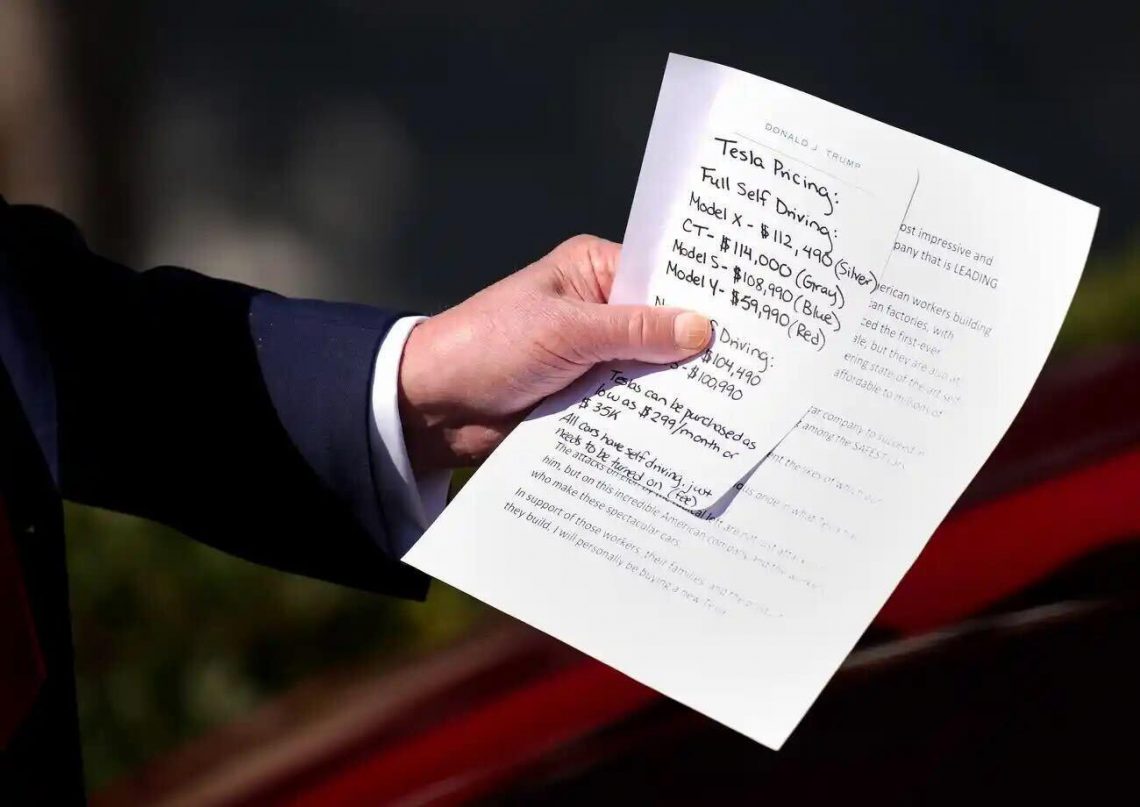 DONALD J. TRUMP
Tesla Pricing:
Full Self Driving:
Model X - $112,490 (Silver)
CT- $114,000 (Gray)
Model S- $108,990 (Blue)
Model Y- $59,990 (Red)
Driving:
$104,490
- $100,990
Teslas can be purchased as
low as $299/month or
$35K
All cars have self driving, just
needs to be turned on (fee)
ost impressive and
pany that is LEADING
erican workers building
can factories, with
ced the first-ever
ale, but they are also at
ering state of the art self
affordable to millions of
ar company to succeed in
among the SAFEST
nt the likes of which our
us once in what Tesla has
The attacks left are not just attacks
him, but on this incredible American company, and the workers
who make these spectacular cars.
In support of those workers, their families, and the
they build, I will personally be buying a new Tesla